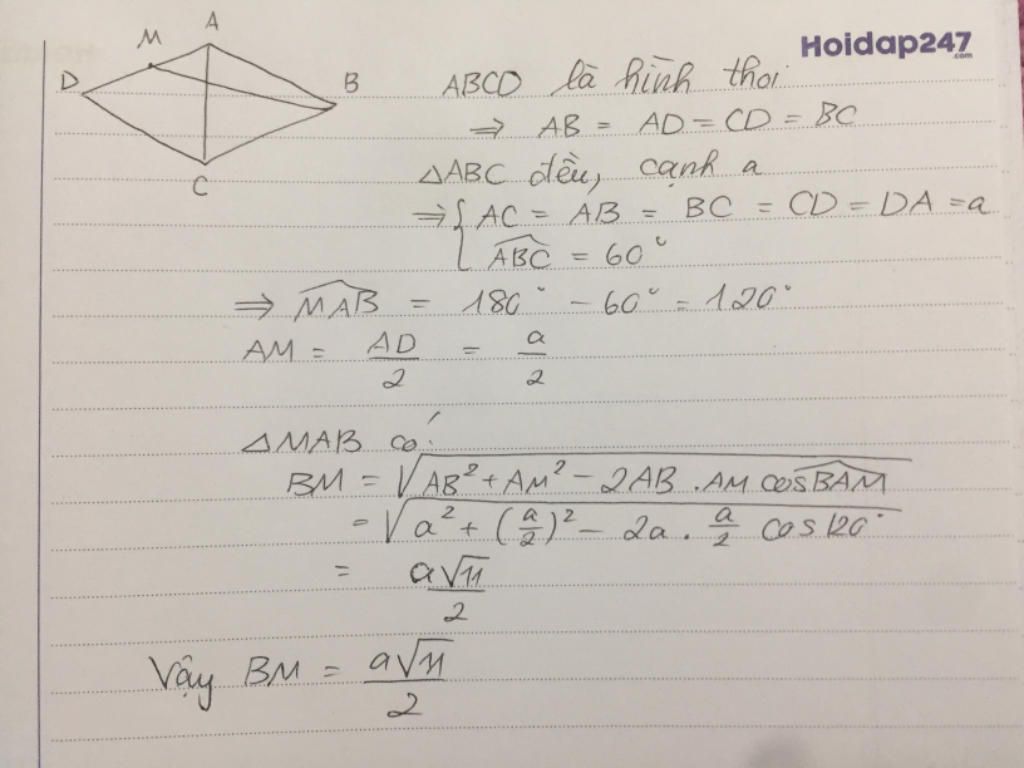 A
M
D
B
C
Hoidap247
.com
ABCD là hình thoi
⇒ AB = AD = CD = BC
△ABC đều, cạnh a
⇒ { AC = AB = BC = CD = DA = a
\widehat{ABC} = 60°
⇒ \widehat{MAB} = 180° - 60° = 120°
AM = \frac{AD}{2} = \frac{a}{2}
△MAB có:
BM = \sqrt{AB² + AM² - 2AB . AM cos\widehat{BAM}}
= \sqrt{a² + (\frac{a}{2})² - 2a . \frac{a}{2} cos 120°}
= \frac{a\sqrt{11}}{2}
Vậy BM = \frac{a\sqrt{11}}{2}